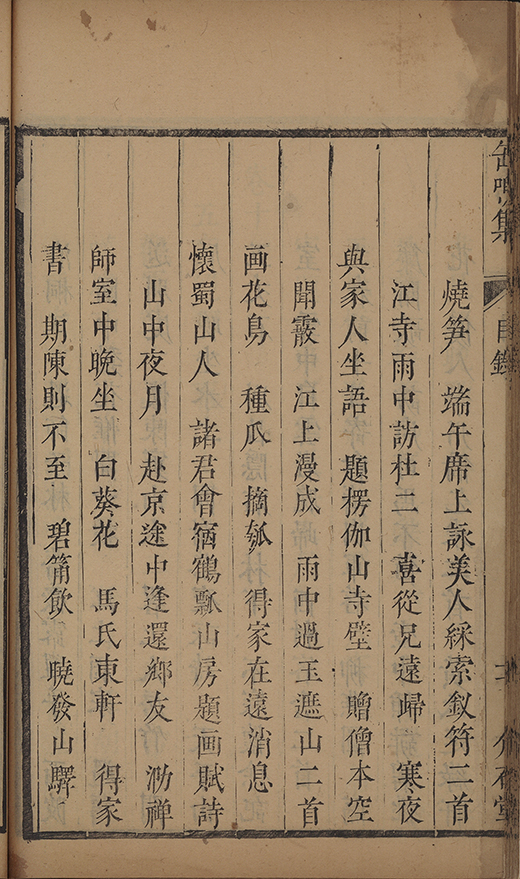 缶鳴集 目錄
燒笋 端午席上詠美人綵索釵符二首
江寺雨中訪杜二不 喜從兄遠歸 寒夜
與家人坐語 題楞伽山寺壁 贈僧本空
聞霰 江上漫成 雨中過玉遮山二首
画花鳥 種瓜 摘瓠 得家在遠消息
懷蜀山人 諸君會宿鶴瓢山房題画賦詩
山中夜月 赴京途中逢還鄉友 泐禅
師室中晚坐 白葵花 馬氏東軒 得家
書 期陳則不至 碧筩飲 曉發山驛